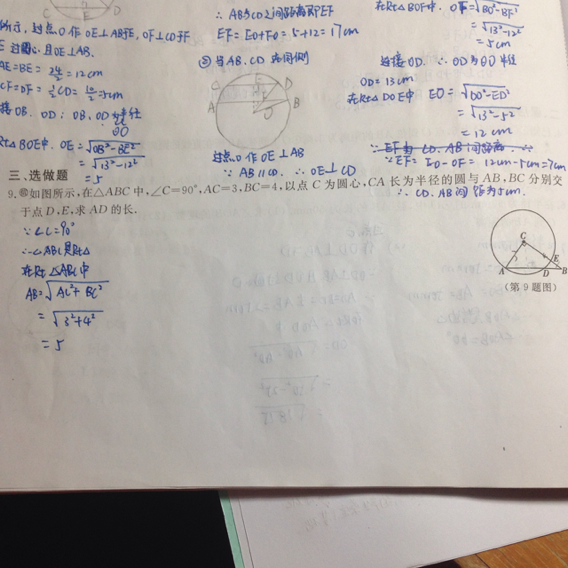 所示,过点O作OE⊥AB于E,OF⊥CD于F
E过圆心,且OE⊥AB.
AE=BE=24/2=12cm
CF=DF=½CD=10/2=5cm
接OB.OD:OB,OD为半径
⊙O
Rt△BOE中.OE=√OB²-BE²
=√13²-12²
=5
∴AB与CD之间距离即EF
EF=EO+FO=5+12=17cm
②当AB.CD在同侧
C E D
A F B
O
过点O作OE⊥AB
∵AB∥CD.∴OE⊥CD
在Rt△BOF中.OF=√BO²-BF²
=√13²-12²
=5cm
连接OD.∴OD为⊙O半径
OD=13cm
在Rt△DOE中 EO=√DO²-ED²
=√13²-5²
=12cm
∵EF为CD.AB间距离
∴EF=EO-OF=12cm-5cm=7cm
∴CD.AB间距为7cm.
三、选做题
9.如图所示,在△ABC中,∠C=90°,AC=3,BC=4,以点C为圆心,CA长为半径的圆与AB,BC分别交
于点D,E,求AD的长.
∵∠C=90°
∴△ABC是Rt△
在Rt△ABC中
AB=√AC²+BC²
=√3²+4²
=5
C
A D B
E
(第9题图)